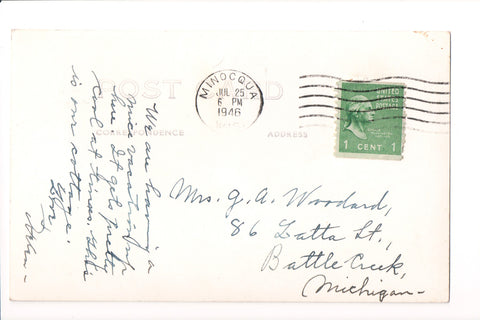 POST CARD
MINOCQUA
JUL 25
6 PM
1946
WIS.
UNITED
STATES
POSTAGE
1 CENT 1
CORRESPONDENCE
ADDRESS
We are having a
nice vacation up
here. It gets pretty
cool at times. This
is our cottage.
Mrs. G. A. Woodard,
86 Latta St.,
Battle Creek,
Michigan-